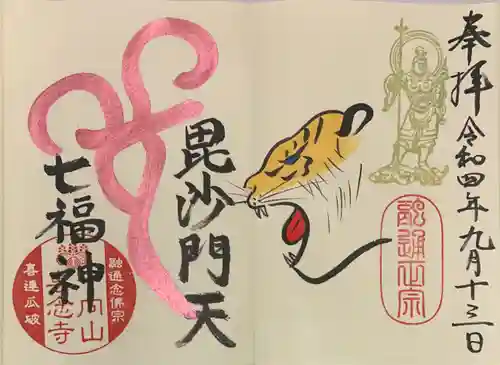 奉拝
令和四年九月十三日
融通正宗
毘沙門天
七福神
融通念佛宗
山
念寺
喜連瓜破